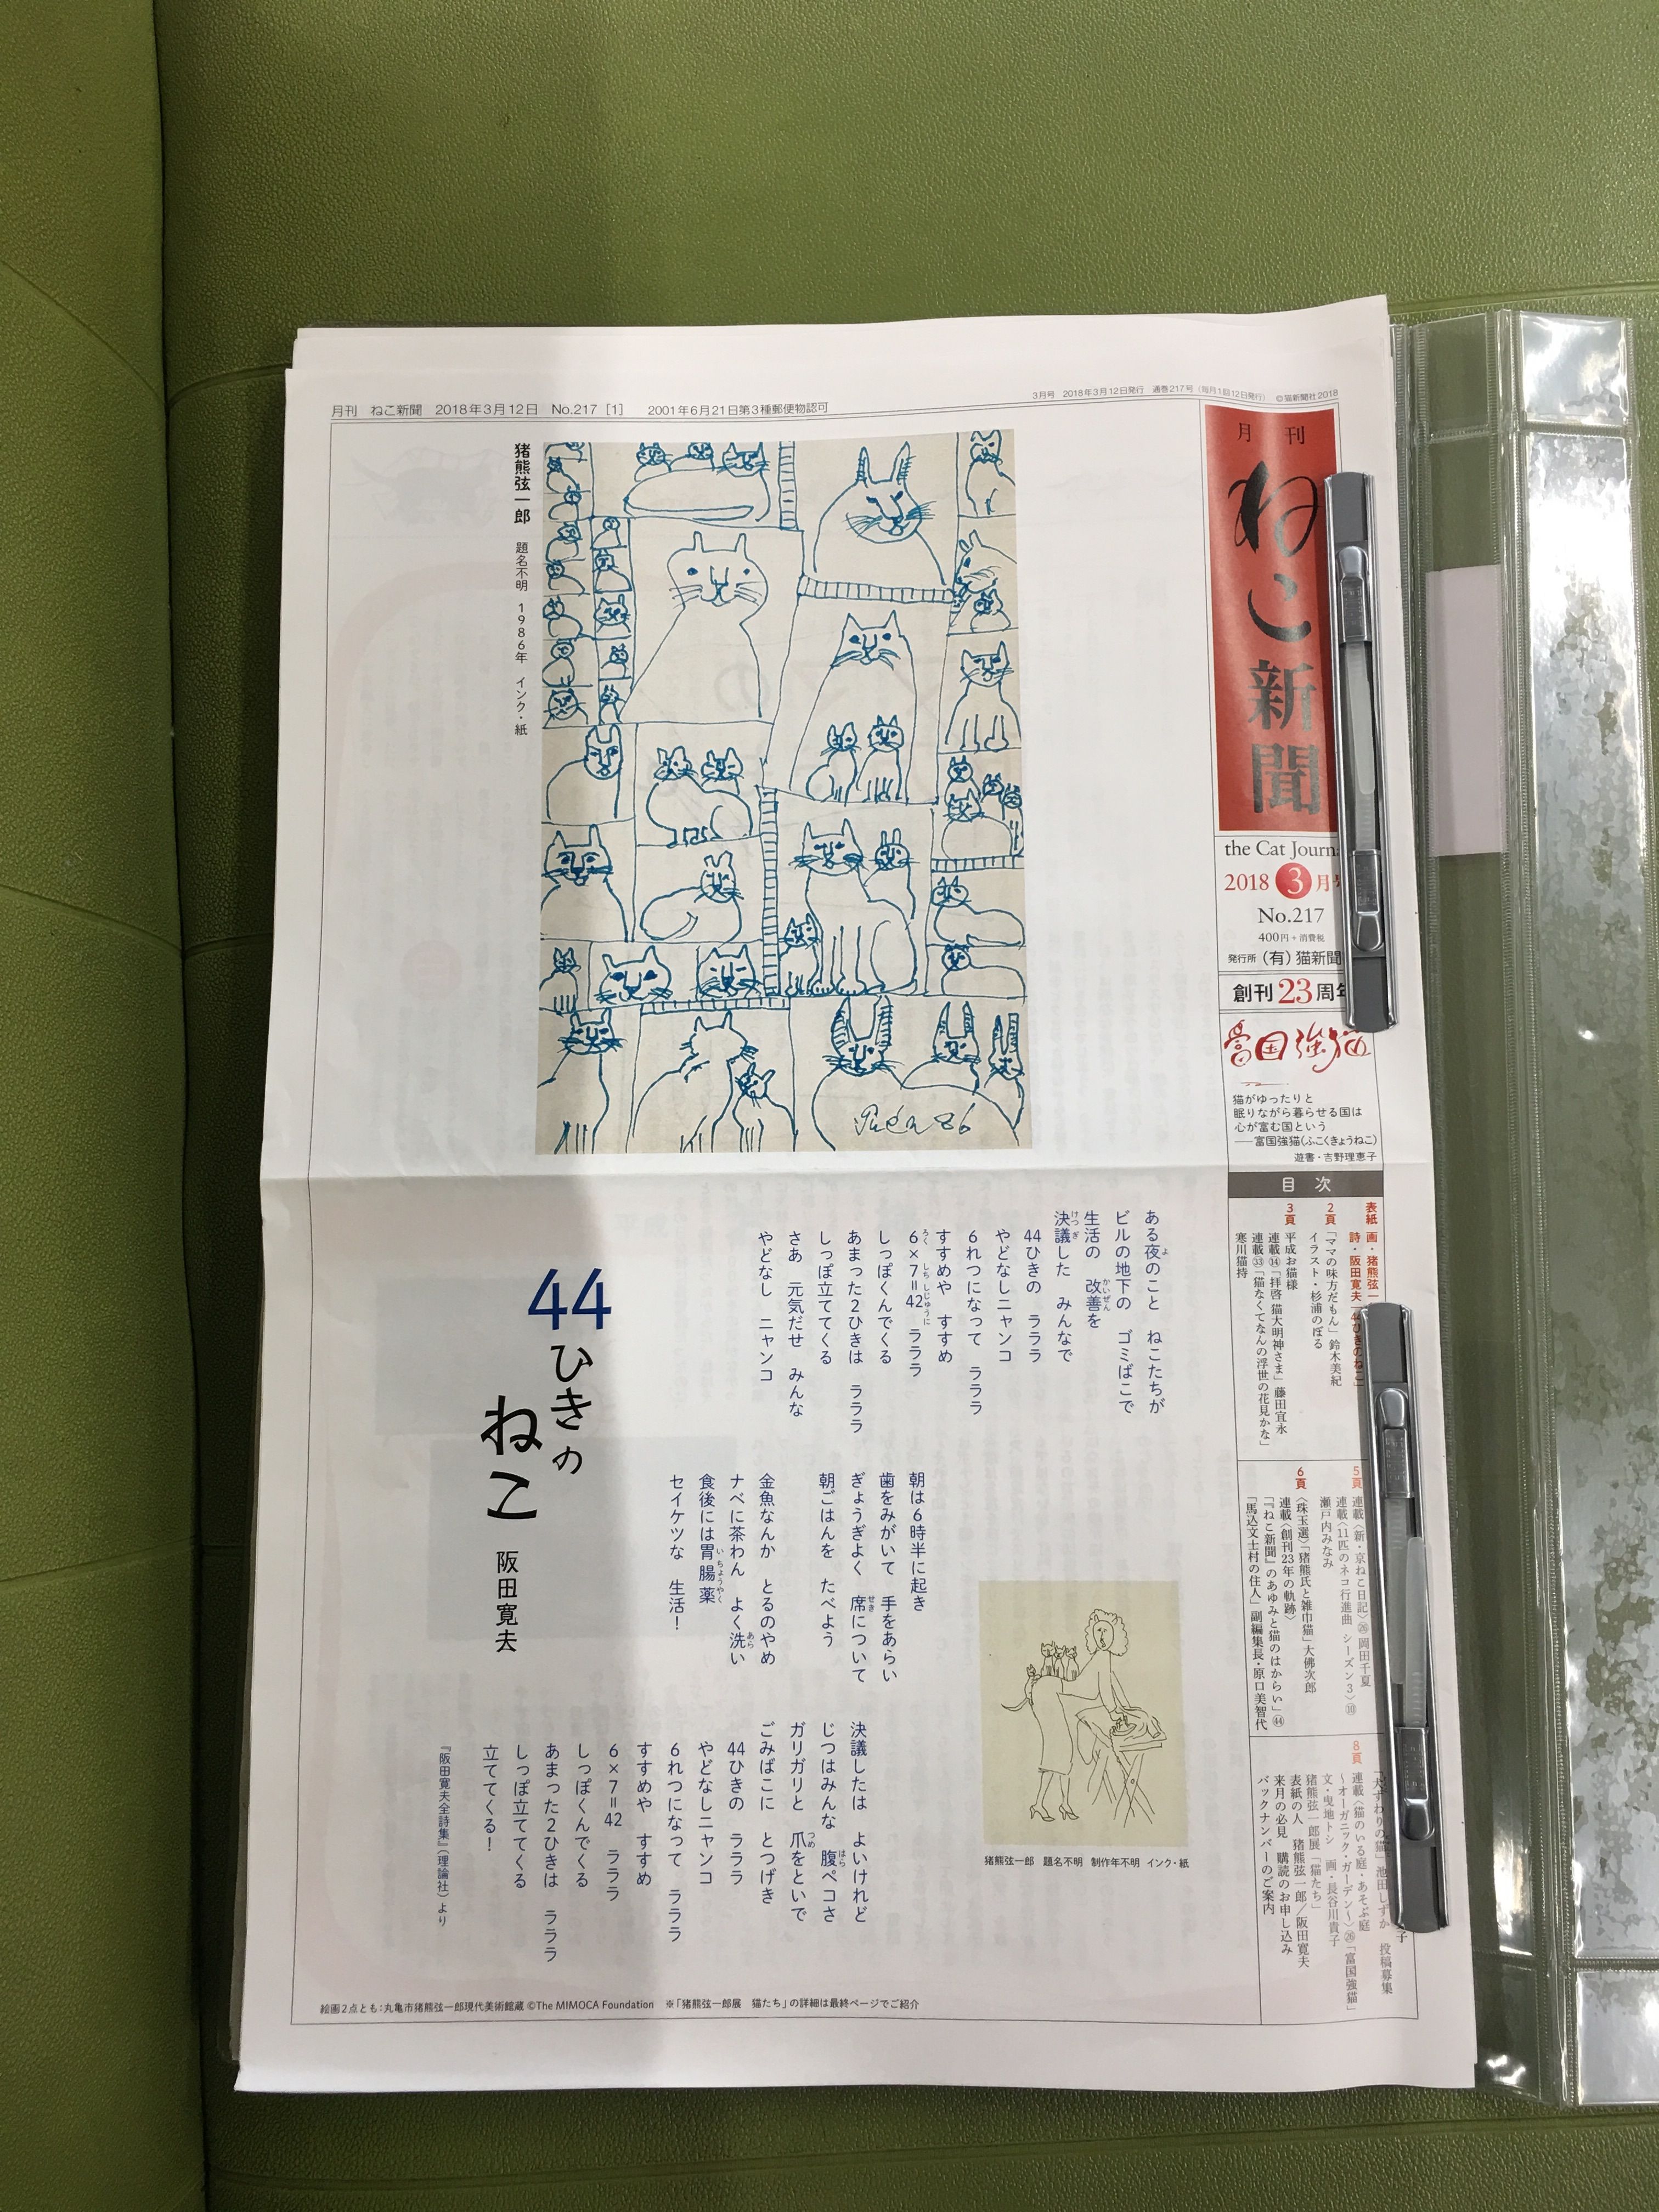 月刊 ねこ新聞 2018年3月12日 No.217 [1] 2001年6月21日第3種郵便物認可
3月号 2018年3月12日発行 通巻217号（毎月1回12日発行） ©猫新聞社2018
月刊
ねこ新聞
the Cat Journ
2018 3 月
No.217
400円＋消費税
発行所（有）猫新聞
創刊23周年
富国強猫
猫がゆったりと
眠りながら暮らせる国は
心が富む国という
──富国強猫（ふこくきょうねこ）
遊書・吉野理恵子
目次
表紙 画・猪熊弦一
詩・阪田寛夫「44ひきのねこ」
2頁 「ママの味方だもん」鈴木美紀
イラスト・杉浦のぼる
3頁 平成お猫様
連載⑭「拝啓 猫大明神さま」藤田宜永
連載㉝「猫なくてなんの浮世の花見かな」
寒川猫持
5頁 連載〈新・京ねこ日記〉㉖ 岡田千夏
連載〈11匹のネコ行進曲 シーズン3〉⑩
瀬戸内みなみ
6頁 〈珠玉選〉「猪熊氏と雑巾猫」大佛次郎
連載〈創刊23年の軌跡〉
『ねこ新聞』のあゆみと猫のはからい」㊹
「馬込文士村の住人」副編集長・原口美智代
8頁 「犬ずわりの猫」池田しずか 投稿募集
連載〈猫のいる庭・あそぶ庭
～オーガニック・ガーデン～〉㉖「富国強猫」
文・曳地トシ 画・長谷川貴子
猪熊弦一郎展「猫たち」
表紙の人 猪熊弦一郎／阪田寛夫
来月の必見 購読のお申し込み
バックナンバーのご案内
子
猪熊弦一郎 題名不明 1986年 インク・紙
Guén 86
44ひきの
ねこ
阪田寛夫
ある夜のこと ねこたちが
よ
ビルの地下の ゴミばこで
生活の 改善を
かいぜん
決議した みんなで
けつぎ
44ひきの ラララ
やどなしニャンコ
6れつになって ラララ
すすめや すすめ
6×7＝42 ラララ
ろく しちしじゅうに
しっぽくんでくる
あまった2ひきは ラララ
しっぽ立ててくる
さあ 元気だせ みんな
やどなし ニャンコ
朝は6時半に起き
歯をみがいて 手をあらい
ぎょうぎよく 席について
せき
朝ごはんを たべよう
金魚なんか とるのやめ
ナベに茶わん よく洗い
あら
食後には胃腸薬
いちょうやく
セイケツな 生活！
決議したは よいけれど
じつはみんな 腹ペコさ
はら
ガリガリと 爪をといで
つめ
ごみばこに とつげき
44ひきの ラララ
やどなしニャンコ
6れつになって ラララ
すすめや すすめ
6×7＝42 ラララ
しっぽくんでくる
あまった2ひきは ラララ
しっぽ立ててくる
立ててくる！
『阪田寛夫全詩集』（理論社）より
猪熊弦一郎 題名不明 制作年不明 インク・紙
絵画2点とも：丸亀市猪熊弦一郎現代美術館蔵 ©The MIMOCA Foundation ※「猪熊弦一郎展 猫たち」の詳細は最終ページでご紹介